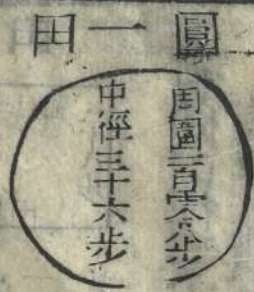 圓一田
周圍一百零八步
中徑三十六步